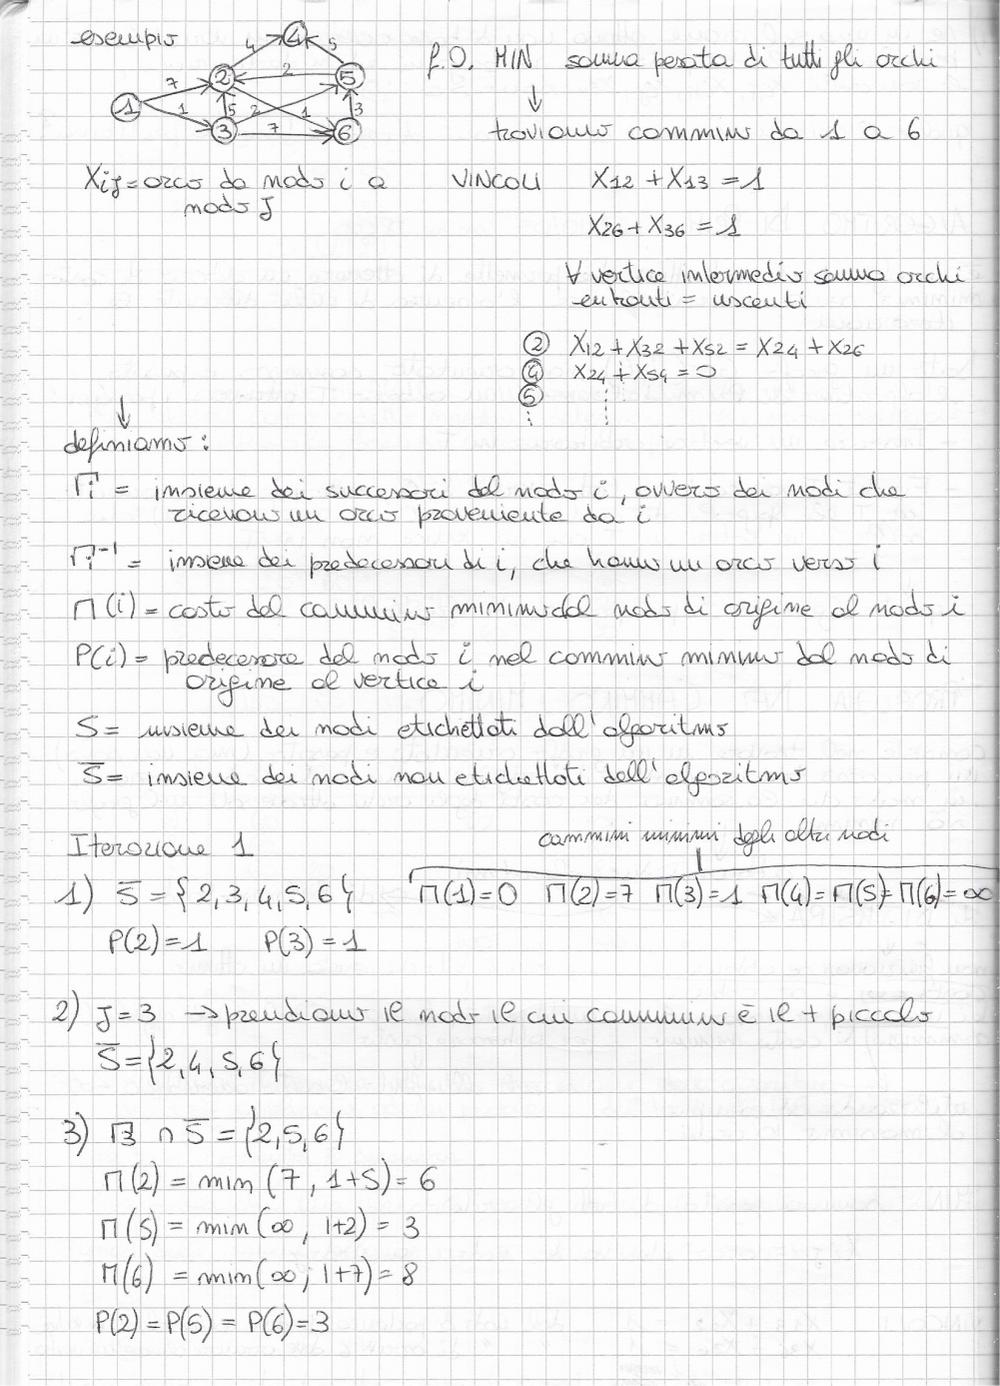 esempio
4 4 5
7 2 2 5
1 1 5 2 1 3
3 7 6
f.O. MIN somma pesata di tutti gli archi
↓
troviamo cammino da 1 a 6
Xij = arco da nodo i a
nodo J
VINCOLI X12 + X13 = 1
X26 + X36 = 1
∀ vertice intermedio somma archi
entranti = uscenti
② X12 + X32 + X52 = X24 + X26
④ X24 + X54 = 0
⑤ ⋮
⋮
↓
definiamo:
Γi = insieme dei successori del nodo i, ovvero dei nodi che
ricevono un arco proveniente da i
Γi⁻¹ = insieme dei predecessori di i, che hanno un arco verso i
Π(i) = costo del cammino minimo dal nodo di origine al nodo i
P(i) = predecessore del nodo i nel cammino minimo dal nodo di
origine al vertice i
S = insieme dei nodi etichettati dall'algoritmo
S̄ = insieme dei nodi non etichettati dell'algoritmo
cammini minimi degli altri nodi
Iterazione 1
1) S̄ = {2,3,4,5,6} Π(1)=0 Π(2)=7 Π(3)=1 Π(4)=Π(5)=Π(6)=∞
P(2)=1 P(3)=1
2) J=3 → prendiamo il nodo il cui cammino è il + piccolo
S̄={2,4,5,6}
3) Γ3 ∩ S̄ = {2,5,6}
Π(2) = min (7, 1+5) = 6
Π(5) = min (∞, 1+2) = 3
Π(6) = min(∞; 1+7) = 8
P(2) = P(5) = P(6) = 3